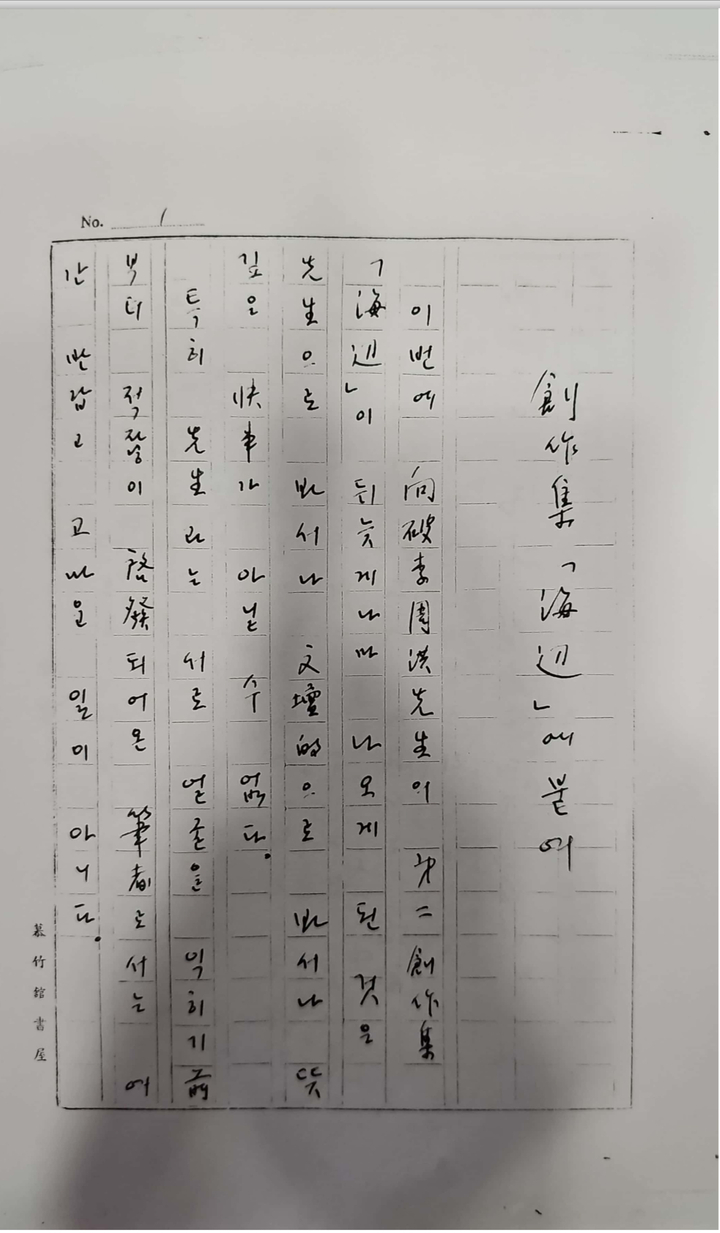 No. 1
創作集「海辺」에 붙여
이번에 向破李周洪先生의 第二創作集
「海辺」이 뒤늦게나마 나오게 된 것은
先生으로 봐서나 文壇的으로 봐서나 뜻
깊은 快事가 아닐 수 없다.
특히 先生과는 서로 얼굴을 익히기 前
부터 적잖이 啓發되어온 筆者로서는 여
간 반갑고 고마운 일이 아니다.
慕竹館書屋